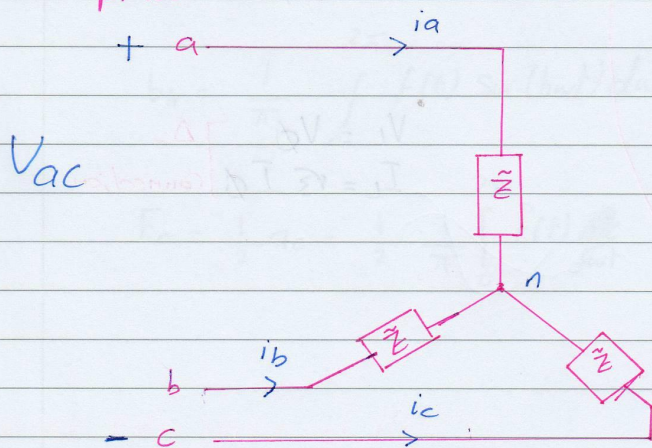 + a ia
Vac
Z̃
n
Z̃
Z̃
ib
b
ic
- c